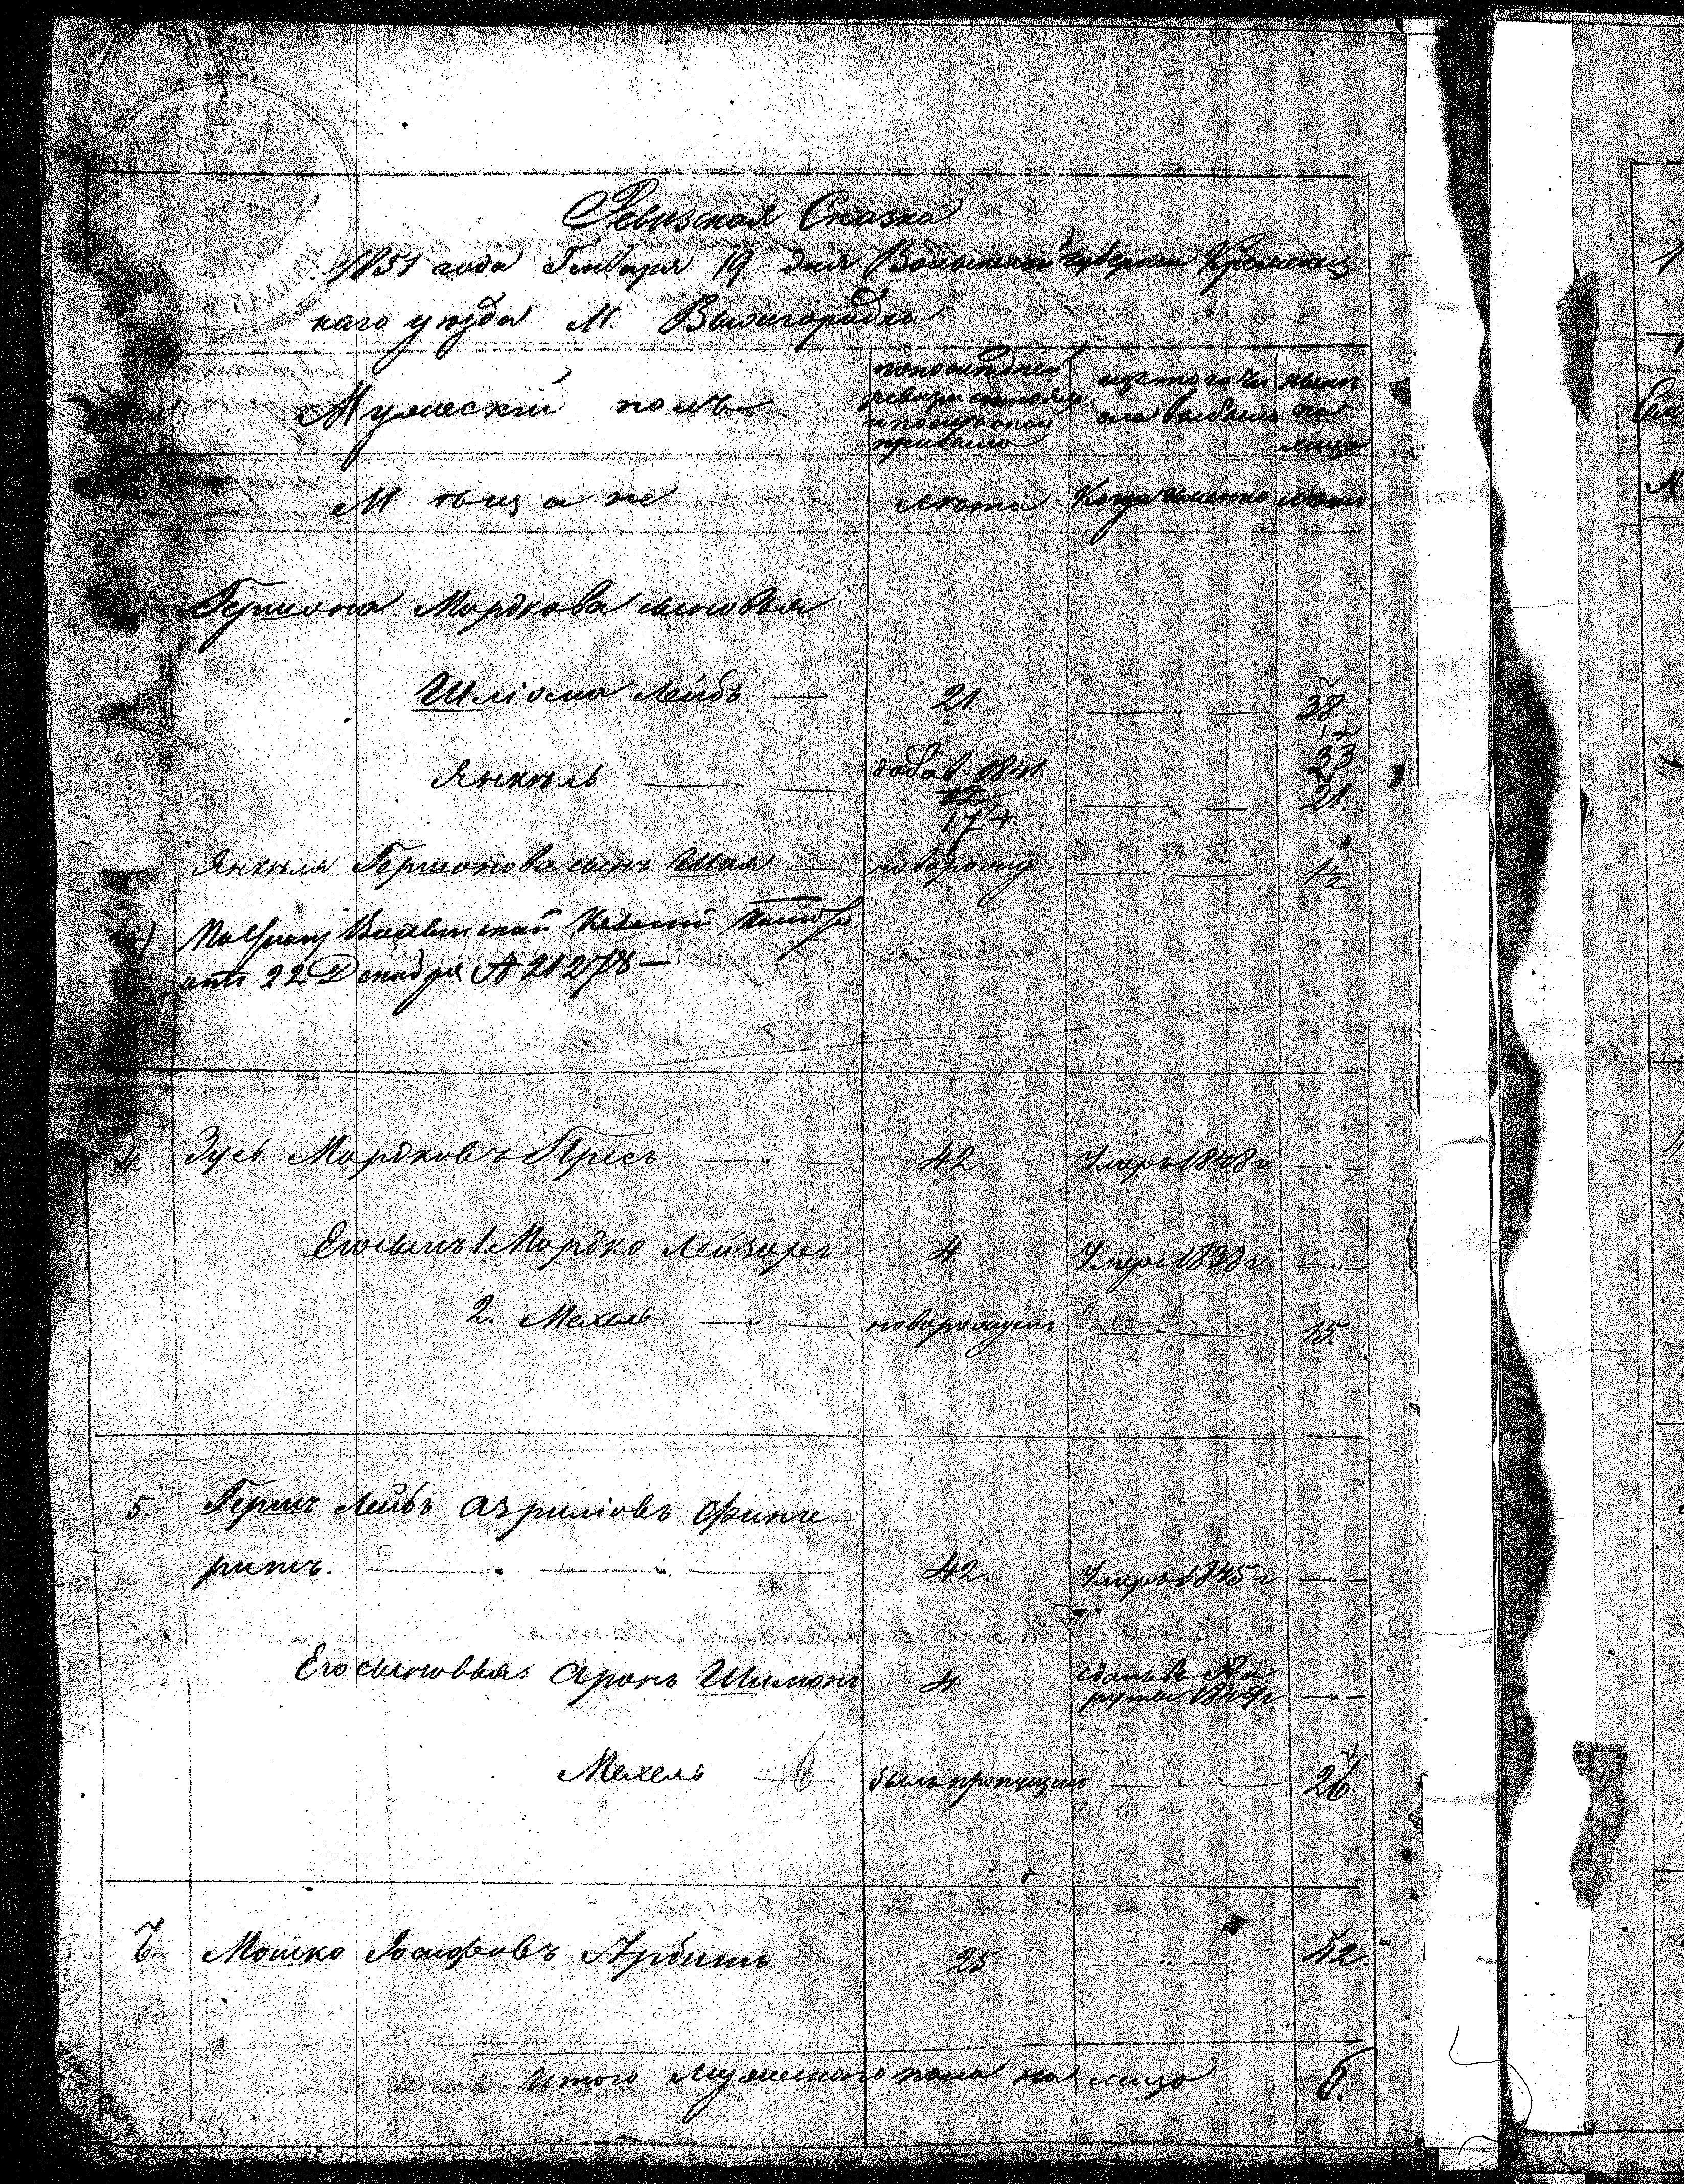 Ревизская Сказка
1851 года Генваря 19 дня Волынской губернии Кременец
каго уезда М. Вышгородка
Мужескій полъ
по последней
ревизіи состояло
и после оной
прибыло
изъ того чи
сла выбыло
ныне
на
лицо
Мѣщане
Лѣта
Когда именно
лѣта
Гершона Мордкова сыновья
Шліома Лейбъ — 21. — " — 38.
Янкель — " — добав. 1841. 33
12 — " — 21.
17 +.
Янкеля Гершонова сынъ Шая — новорож — 1½
Волынской Казенной
отъ 22 Декабря № 21278 —
4. Зусь Мордковъ Пресъ — " — 42 Умеръ 1848 г — " —
Его сынъ 1. Мордко Лейзоръ 4 Умеръ 1838 г — " —
2. Мехель — " — новорожденъ — " — 15.
5. Гершъ Лейбъ Азриліовъ Финге
рить. — " — " — 42. Умеръ 1845 г — " —
Его сыновья: Аронъ Шимонъ 4 сданъ въ Ре
круты 1849 г — " —
Мехель — былъ пропущенъ — " — 26.
6. Мошко Іосифовъ Арбитъ 25 — " — 42.
Итого мужескаго пола на лицо 6.